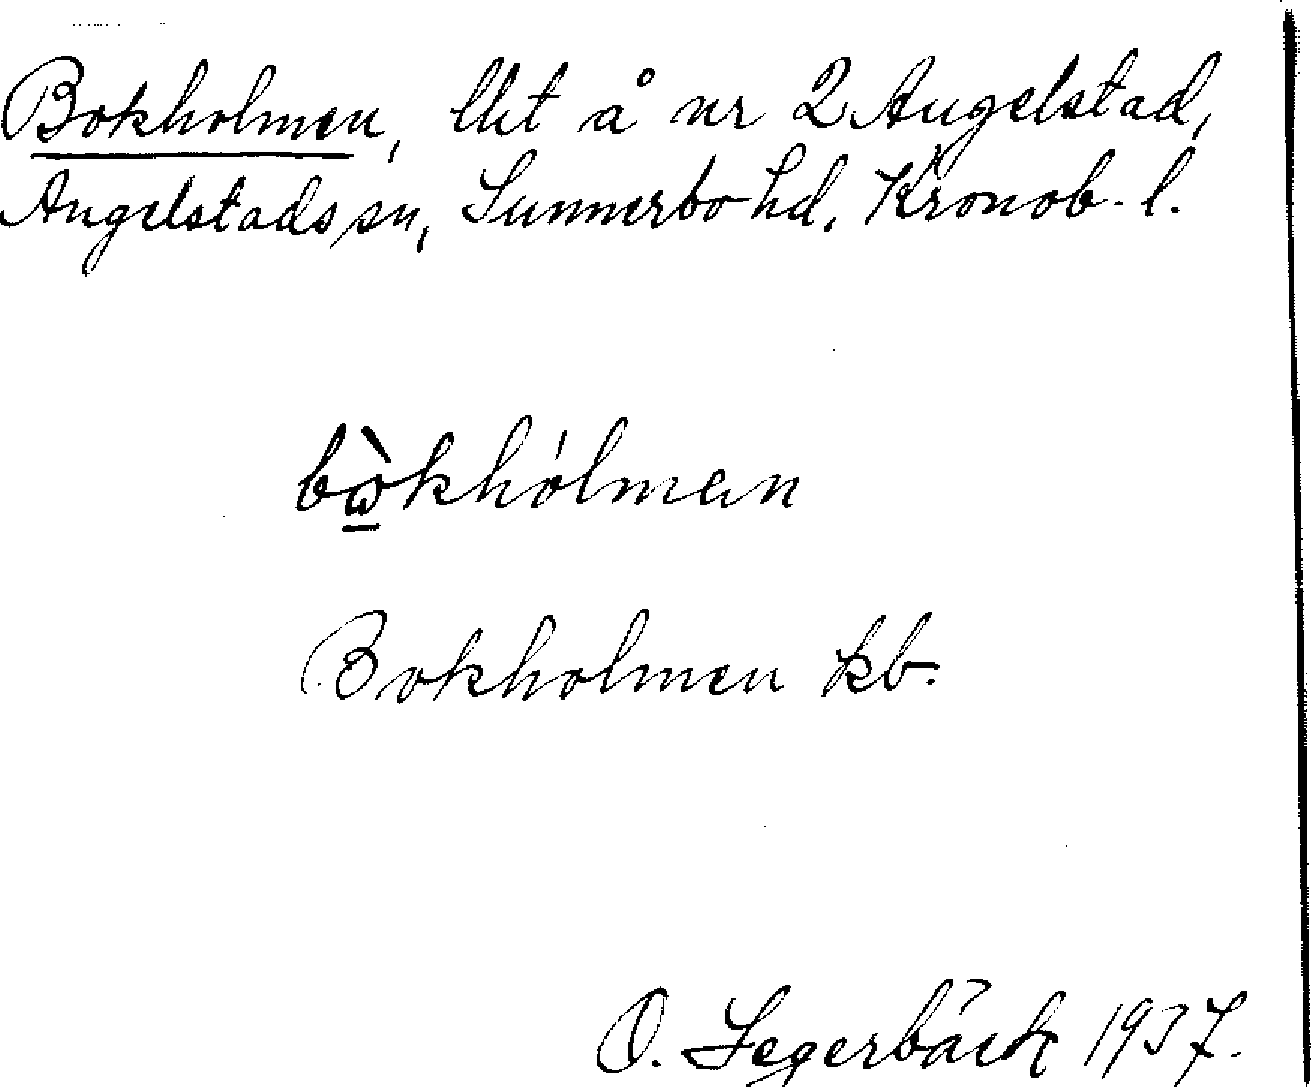 Bokholmen, lht å nr 2 Angelstad,
Angelstads sn, Sunnerbo hd. Kronob. l.
bὼ̲khólmən
Bokholmen kb.
O. Segerbäck 1937.